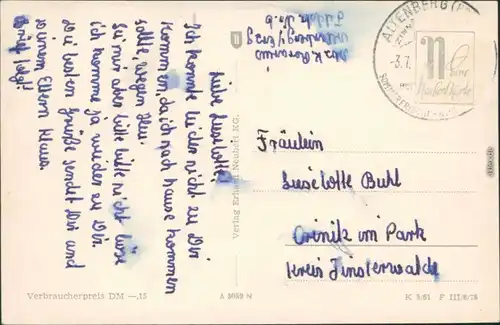 Liebe Lieselotte!
Ich konnte leider nicht zu Dir
kommen, da ich nach hause kommen
sollte, wegen Heu.
Sei mir aber bitte bitte nicht böse
ich komme ja wieder zu Dir.
Die besten Grüße sendet Dir und
Deinen Eltern Klaus.
Brief folgt!
Altenberg / Erzg
ALTENBERG
-3.7.
Fräulein
Lieselotte Buhl
Crinitz im Park
Kreis Finsterwalde
Verlag Erhard Neubert KG.
Verbraucherpreis DM —,15
A 3059 N
K 5/61 F III/8/78